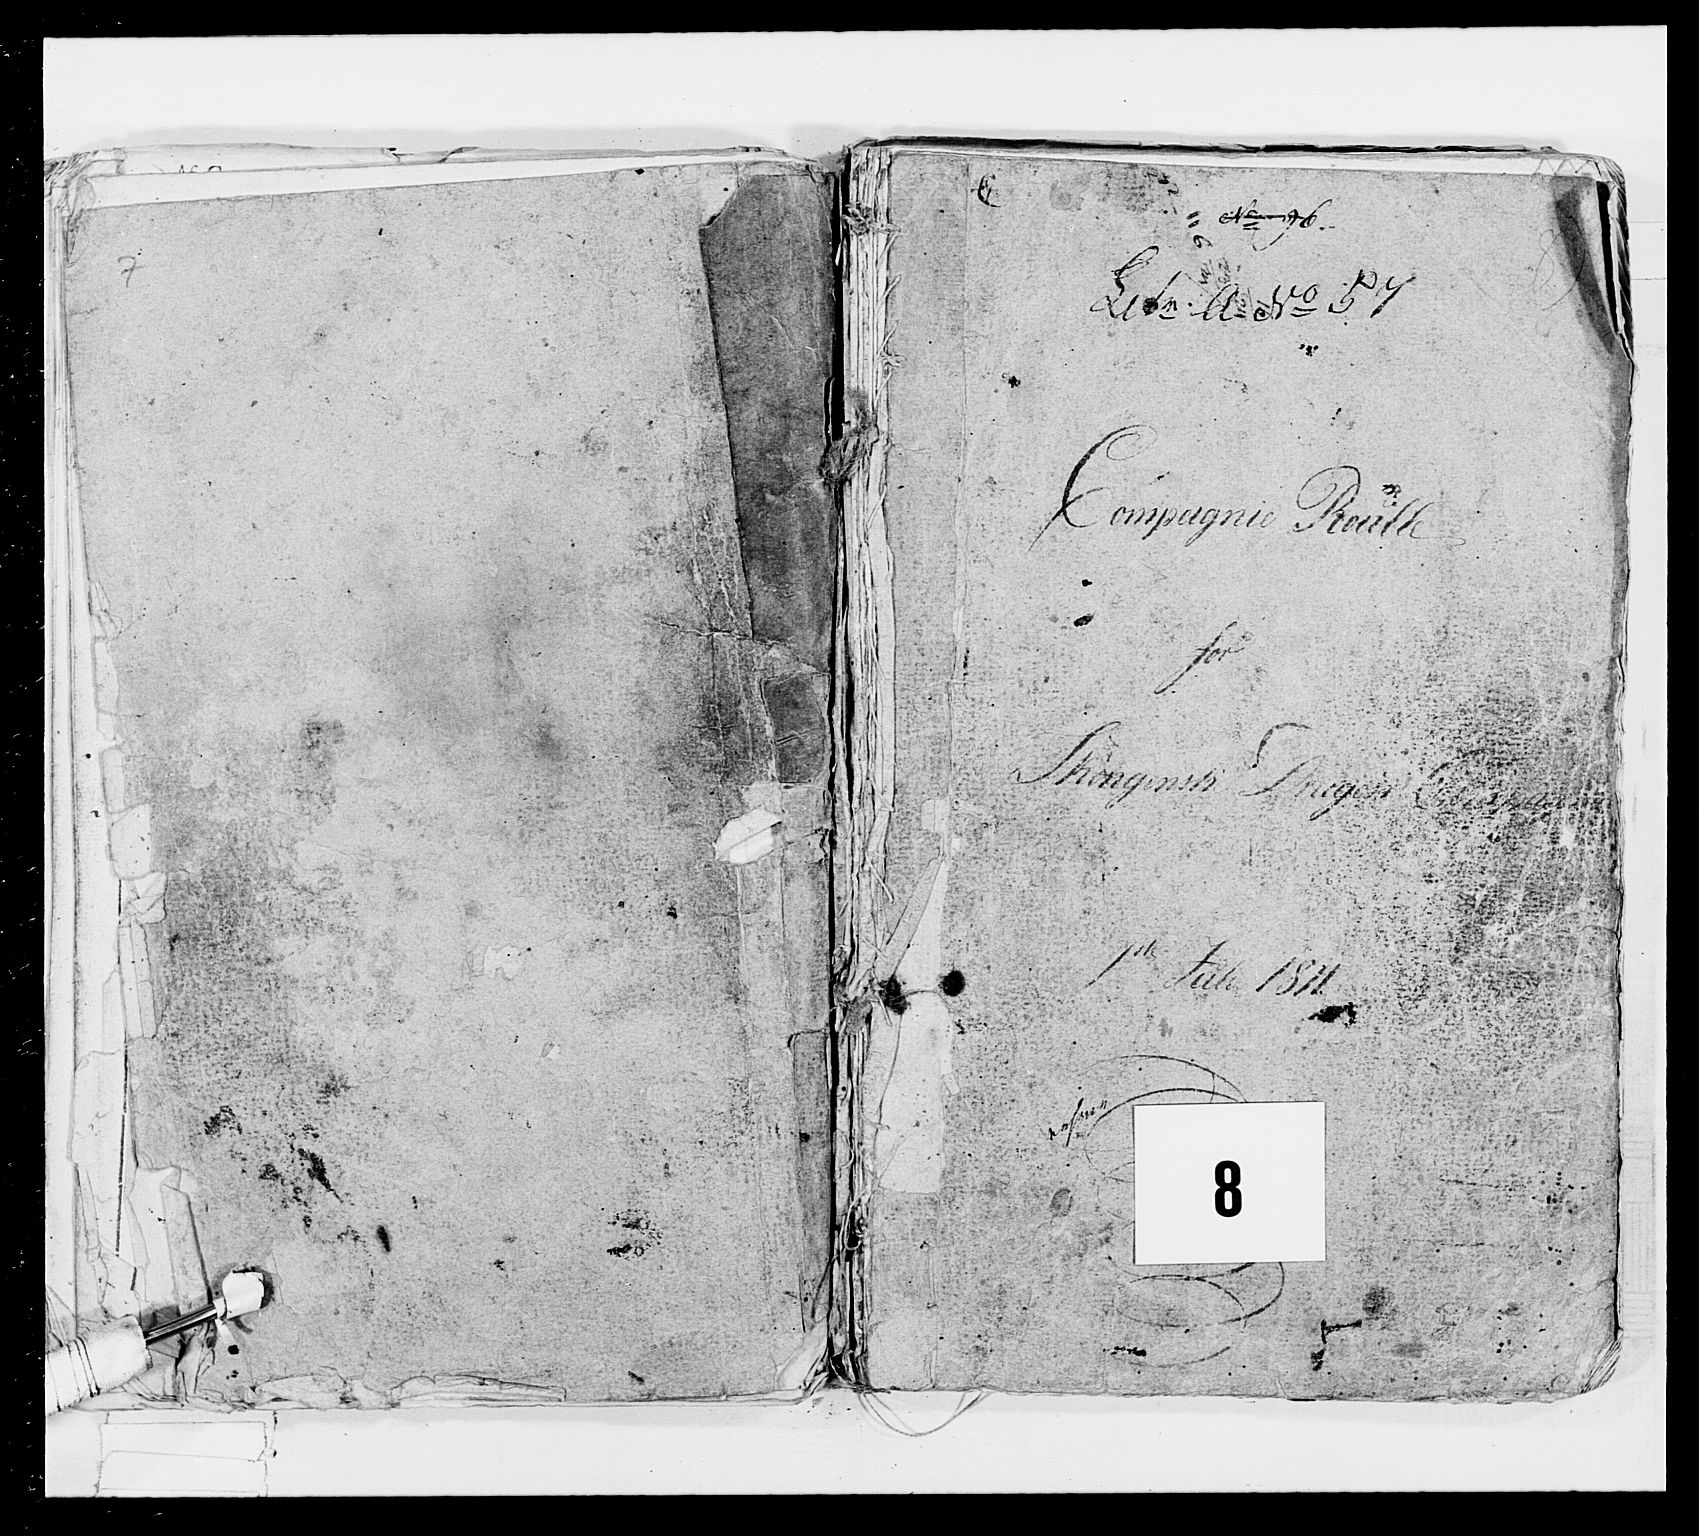 7
No 76.
Litr. A. No 57
Compagnie Roülle
for
Skongenske Dragon Compagnie
1ste Julii 1811
8